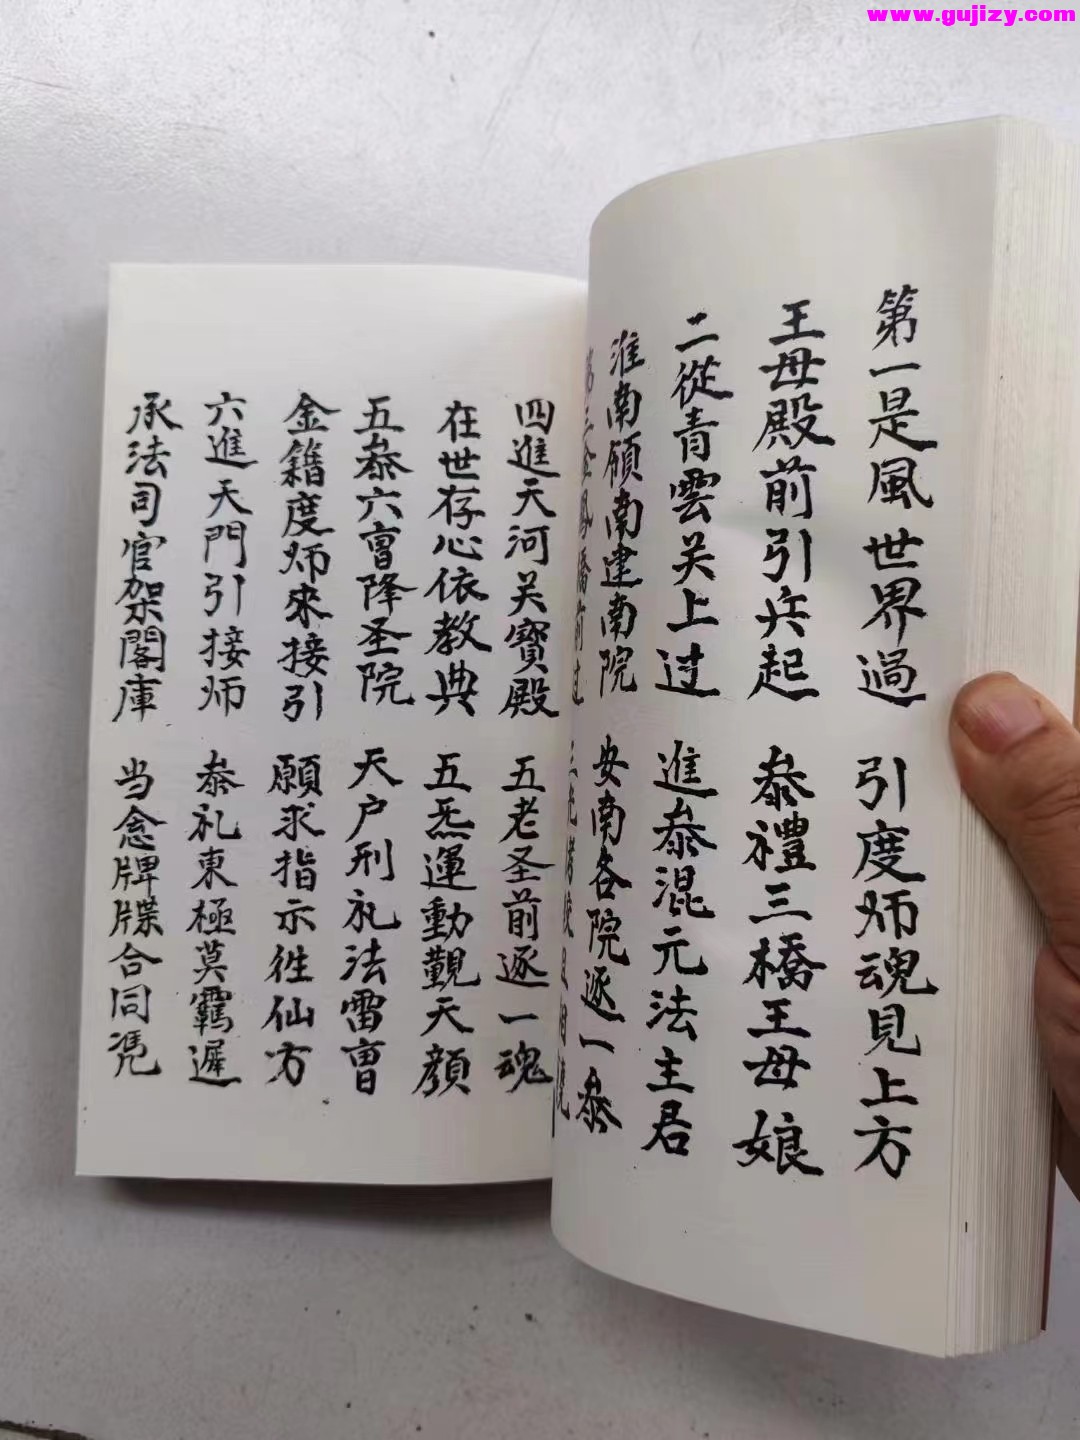 www.gujizy.com
第一是風世界過 引度师魂見上方
王母殿前引兵起 叅禮三橋王母娘
二從青雲关上过 進叅混元法主君
淮南頠南建南院 安南各院逐一叅
第三金鳳橋前过
四進天河关寶殿 五老圣前逐一魂
在世存心依教典 五炁運動觀天顏
五叅六曺降圣院 天户刑礼法雷曺
金籍度师來接引 願求指示徃仙方
六進天門引接师 叅礼東極莫羈遲
承法司官架閣庫 当念牌牒合同凴